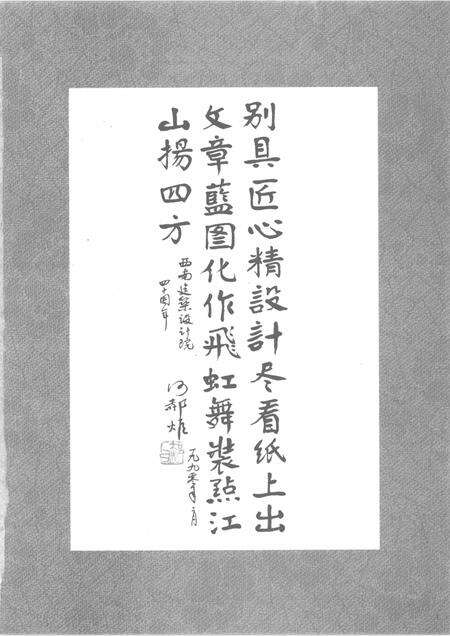 别具匠心精設計尽看纸上出
文章藍图化作飛虹舞装點江
山揚四方
西南建築设计院
四十周年
何郝炬
一九九〇年二月